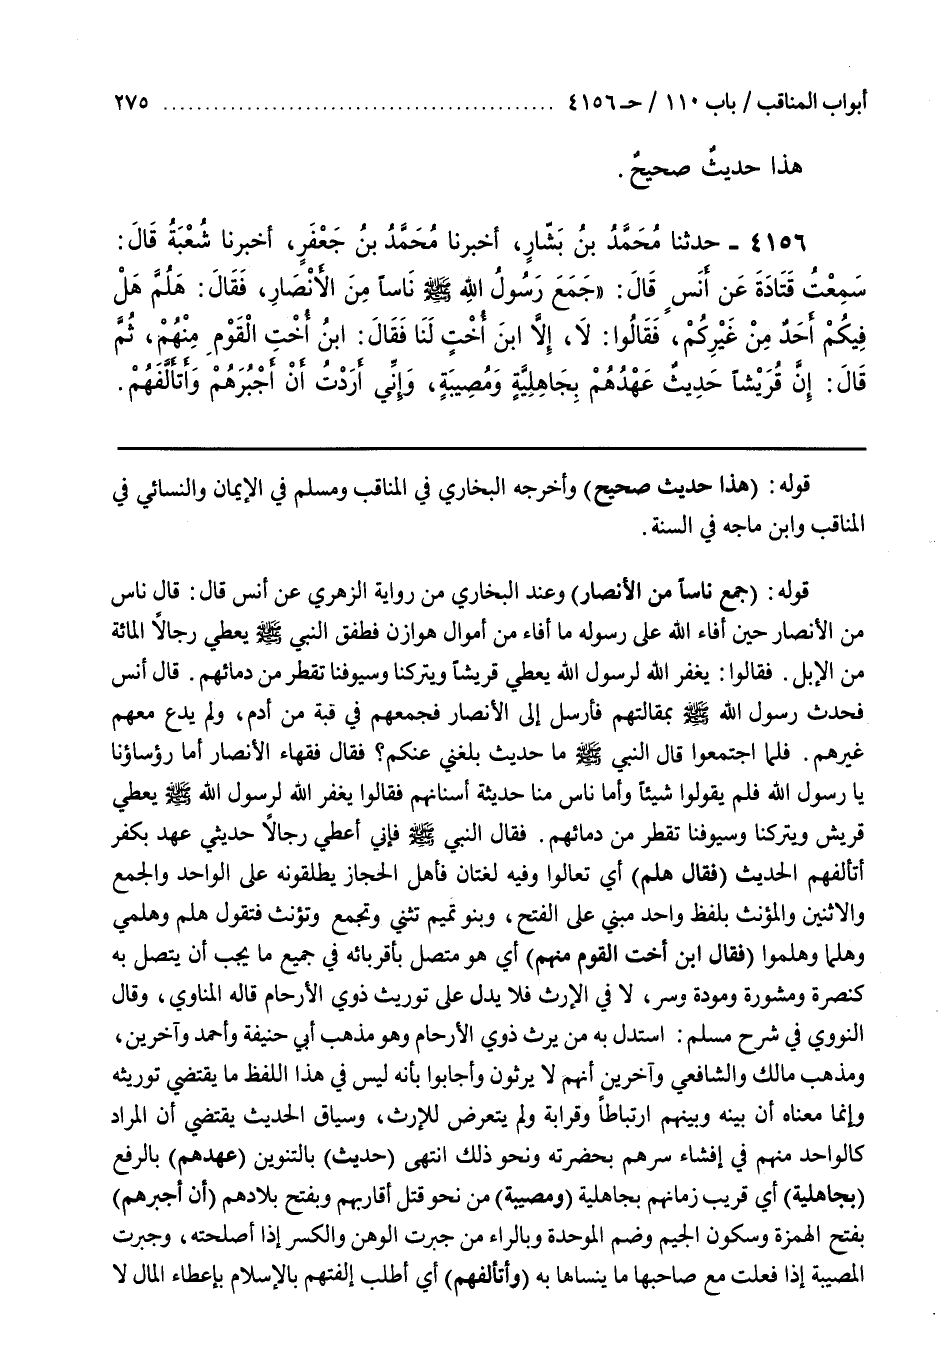 أبواب المناقب / باب ١١٠ / حـ ٤١٥٦ ................................................ ٢٧٥
هذا حديثٌ صحيحٌ .
٤١٥٦ ـ حدثنا مُحَمَّدُ بنُ بَشّارٍ، أخبرنا مُحَمَّدُ بنُ جَعْفَرٍ، أخبرنا شُعْبَةُ قَالَ:
سَمِعْتُ قَتَادَةَ عَن أَنَسٍ قَالَ: «جَمَعَ رَسُولُ اللهِ ﷺ نَاساً مِنَ الأَنْصَارِ، فَقَالَ: هَلُمَّ هَلْ
فِيكُمْ أَحَدٌ مِنْ غَيْرِكُمْ، فَقَالُوا: لَا، إِلَّا ابنَ أُخْتٍ لَنَا فَقَالَ: ابنُ أُخْتِ الْقَوْمِ مِنْهُمْ، ثُمَّ
قَالَ: إِنَّ قُرَيْشاً حَدِيثٌ عَهْدُهُمْ بِجَاهِلِيَّةٍ وَمُصِيبَةٍ، وَإِنِّي أَرَدْتُ أَنْ أَجْبُرَهُمْ وَأَتَأَلَّفَهُمْ.
قوله: (هذا حديث صحيح) وأخرجه البخاري في المناقب ومسلم في الإيمان والنسائي في
المناقب وابن ماجه في السنة.
قوله: (جمع ناساً من الأنصار) وعند البخاري من رواية الزهري عن أنس قال: قال ناس
من الأنصار حين أفاء الله على رسوله ما أفاء من أموال هوازن فطفق النبي ﷺ يعطي رجالاً المائة
من الإبل. فقالوا: يغفر الله لرسول الله يعطي قريشاً ويتركنا وسيوفنا تقطر من دمائهم. قال أنس
فحدث رسول الله ﷺ بمقالتهم فأرسل إلى الأنصار فجمعهم في قبة من أدم، ولم يدع معهم
غيرهم. فلما اجتمعوا قال النبي ﷺ ما حديث بلغني عنكم؟ فقال فقهاء الأنصار أما رؤساؤنا
يا رسول الله فلم يقولوا شيئاً وأما ناس منا حديثة أسنانهم فقالوا يغفر الله لرسول الله ﷺ يعطي
قريش ويتركنا وسيوفنا تقطر من دمائهم. فقال النبي ﷺ فإني أعطي رجالاً حديثي عهد بكفر
أتألفهم الحديث (فقال هلم) أي تعالوا وفيه لغتان فأهل الحجاز يطلقونه على الواحد والجمع
والاثنين والمؤنث بلفظ واحد مبني على الفتح، وبنو تميم تثني وتجمع وتؤنث فتقول هلم وهلمي
وهلما وهلموا (فقال ابن أخت القوم منهم) أي هو متصل بأقربائه في جميع ما يجب أن يتصل به
كنصرة ومشورة ومودة وسر، لا في الإرث فلا يدل على توريث ذوي الأرحام قاله المناوي، وقال
النووي في شرح مسلم: استدل به من يرث ذوي الأرحام وهو مذهب أبي حنيفة وأحمد وآخرين،
ومذهب مالك والشافعي وآخرين أنهم لا يرثون وأجابوا بأنه ليس في هذا اللفظ ما يقتضي توريثه
وإنما معناه أن بينه وبينهم ارتباطاً وقرابة ولم يتعرض للإرث، وسياق الحديث يقتضي أن المراد
كالواحد منهم في إفشاء سرهم بحضرته ونحو ذلك انتهى (حديث) بالتنوين (عهدهم) بالرفع
(بجاهلية) أي قريب زمانهم بجاهلية (ومصيبة) من نحو قتل أقاربهم وبفتح بلادهم (أن أجبرهم)
بفتح الهمزة وسكون الجيم وضم الموحدة وبالراء من جبرت الوهن والكسر إذا أصلحته، وجبرت
المصيبة إذا فعلت مع صاحبها ما ينساها به (وأتألفهم) أي أطلب إلفتهم بالإسلام بإعطاء المال لا